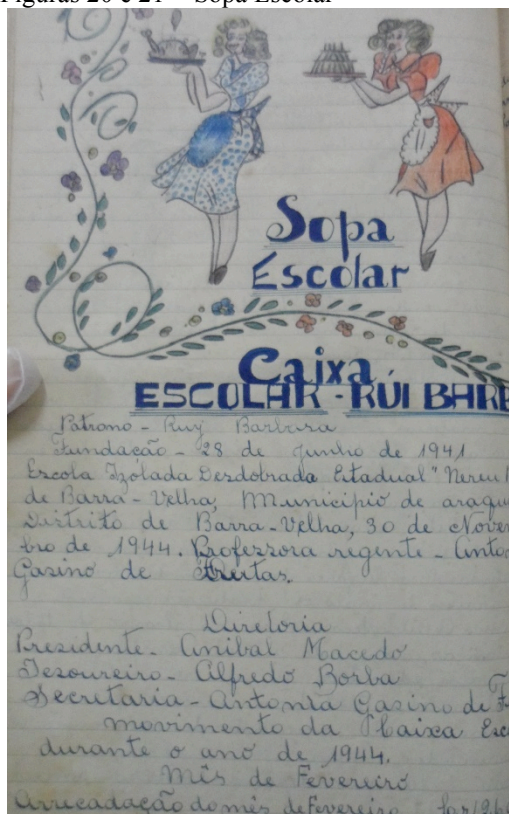 Figuras 20 e 21 – Sopa Escolar
Sopa
Escolar
Caixa
ESCOLAR - RÚI BARB
Patrono - Ruy Barbosa
Fundação - 28 de Junho de 1941
Escola Izolada Desdobrada Estadual "Nereu
de Barra-Velha, Municipio de araqu
Distrito de Barra-Velha, 30 de Novem
bro de 1944. Professora regente - Anto
Gasino de Freitas.
Diretoria
Presidente - Anibal Macedo
Tezoureiro - Alfredo Borba
Secretaria - Antonia Gasino de F
movimento da Caixa Esc
durante o ano de 1944.
Mês de Fevereiro
Arrecadação do mês de Fevereiro